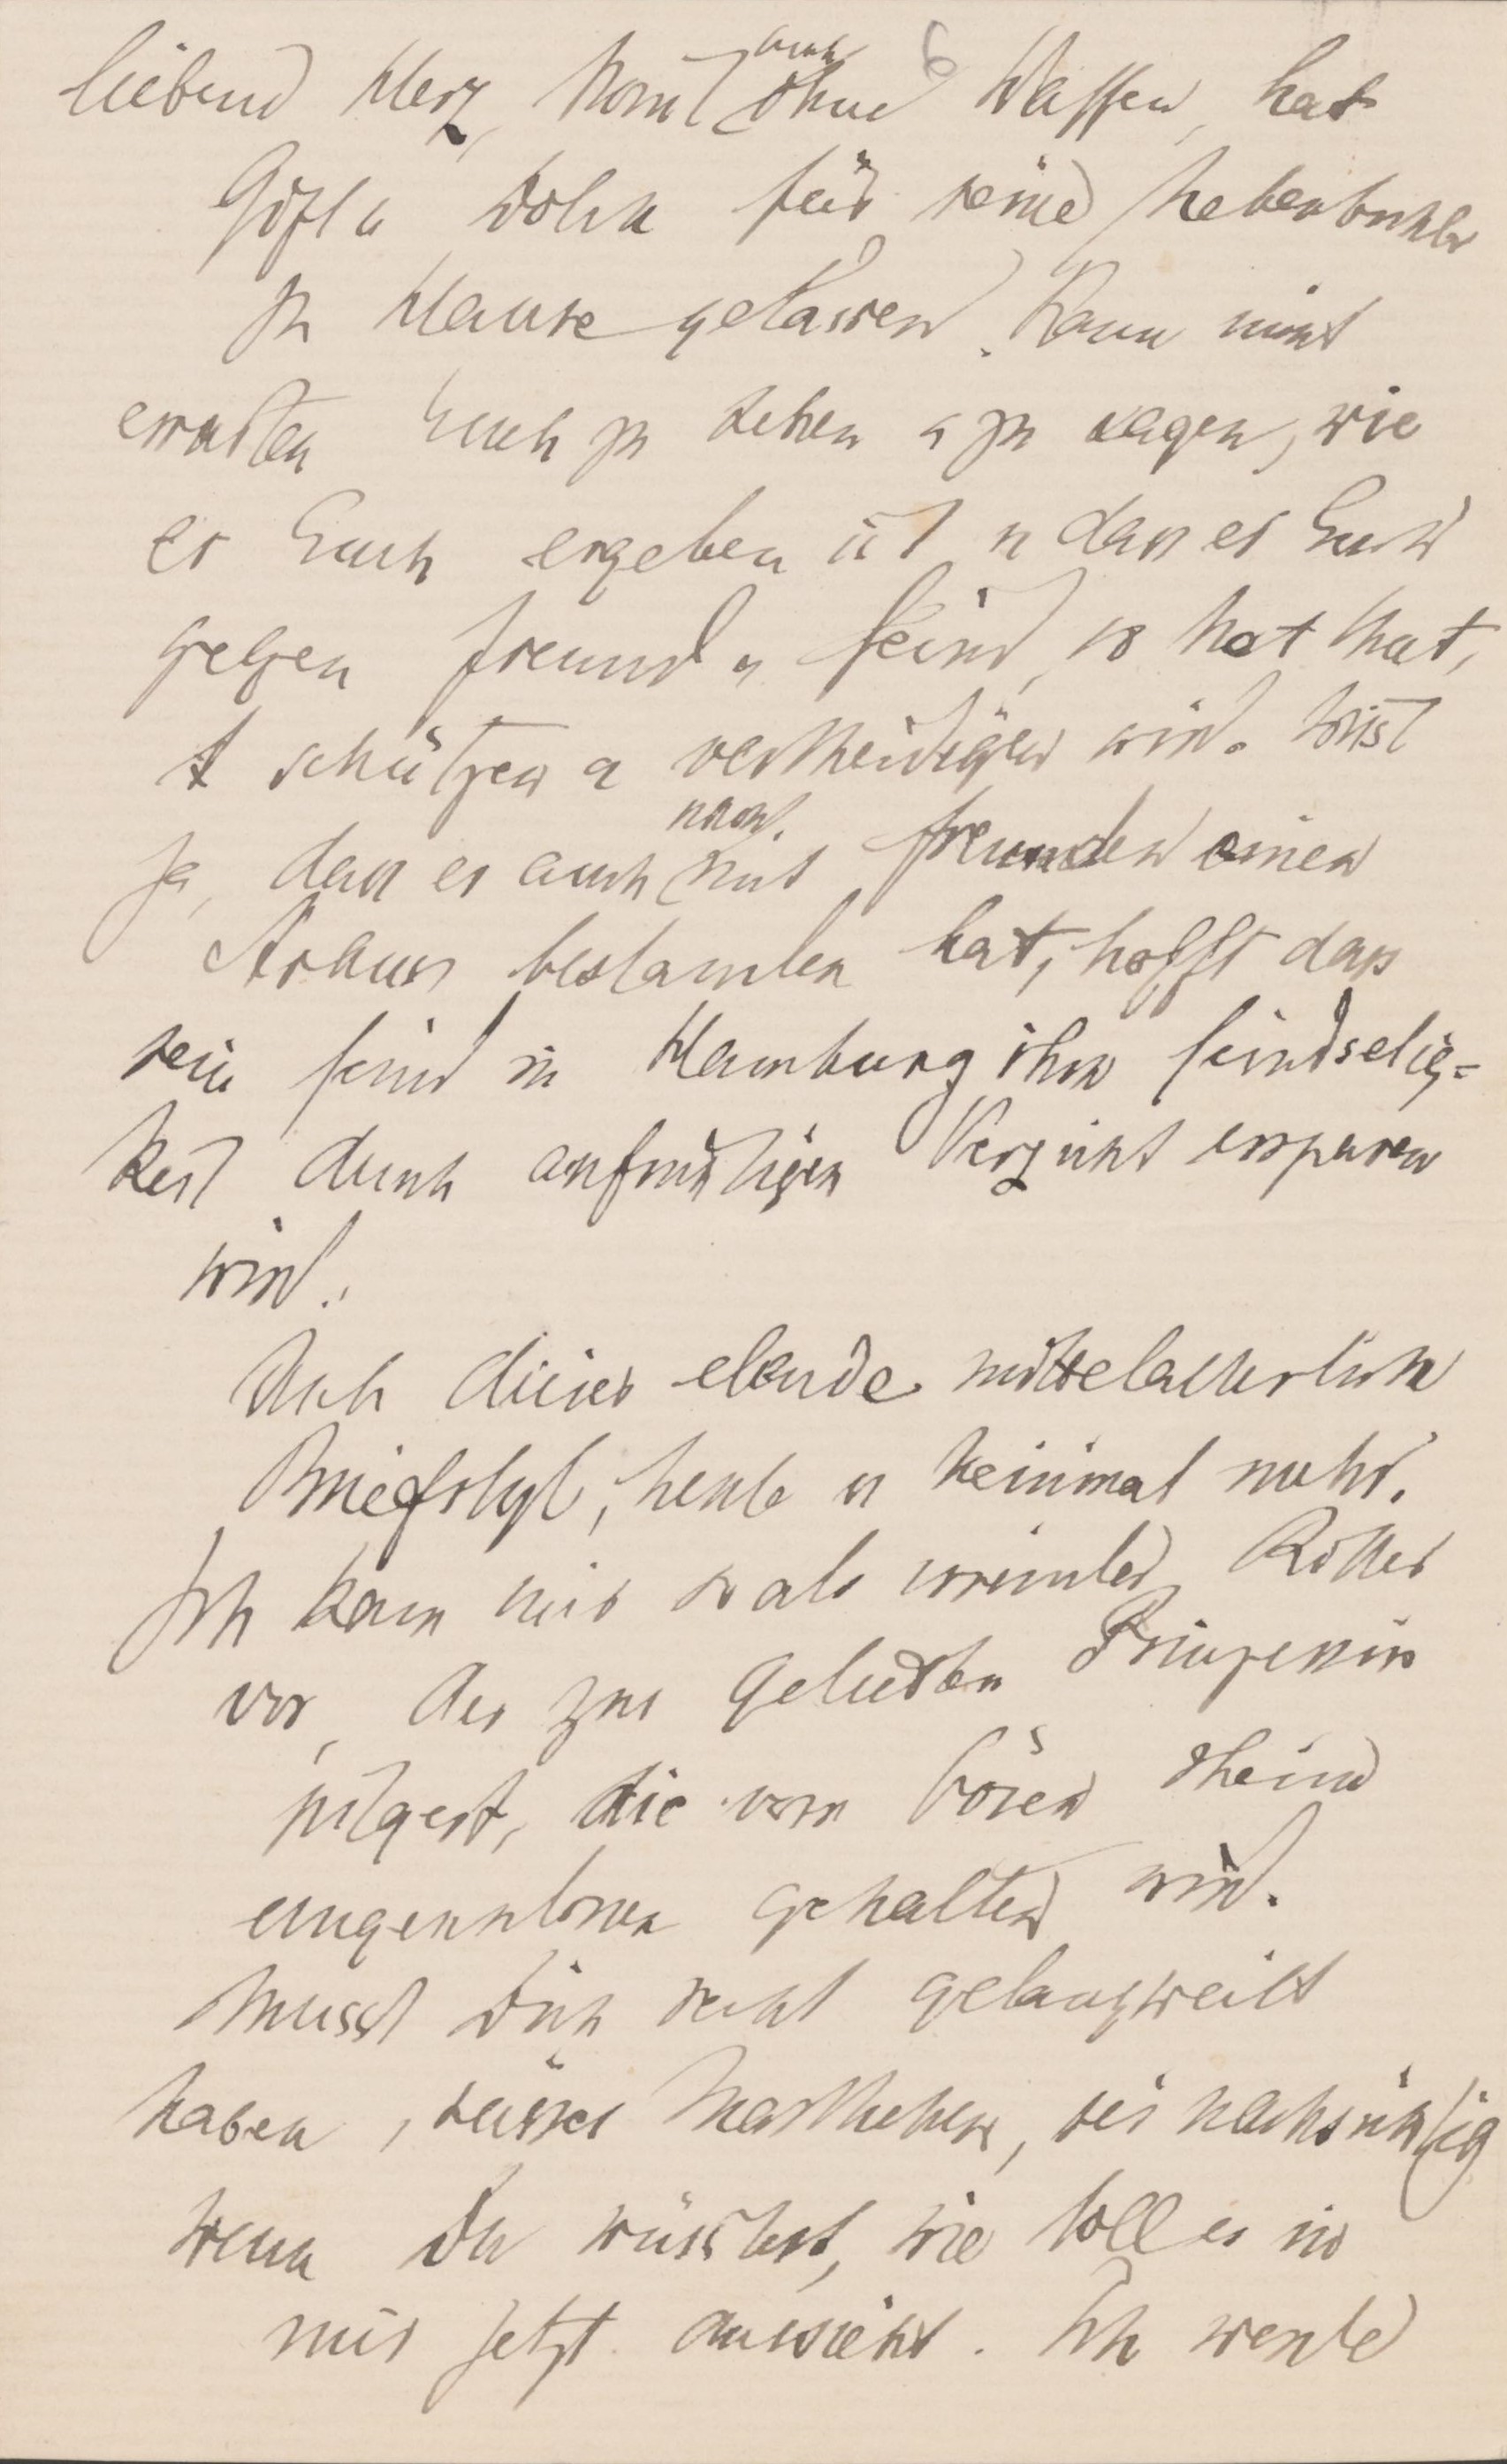 6
liebend Herz, kommt auch ohne Waffen, hat
Gift u Dolch für seine Nebenbuhler
zu Hause gelassen. Kann nicht
erwarten Euch zu sehen u zu sagen, wie
er Euch ergeben ist u dass er Euch
gegen Freund u Feind, so hat that,
schützen u vertheidigen wird. Wisst
ja, dass er auch mit Freunden einen
Strauss bestanden hat, hofft dass
sein Feind in Hamburg ihm Feindselig-
keit durch aufrichtigen Verzicht ersparen
wird.
Ach dieser elende mittelalterliche
Briefstyl, heute u keinmal mehr.
Ich kam mir so als Ritter
vor, der zur geliebten Prinzessin
pilgert, die vom bösen Oheim
eingeschlossen gehalten wird.
Musst Dich recht gelangweilt
haben, süsses Marthchen, sei nachsichtig
wenn Du wüsstest, wie toll es in
mir jetzt aussieht. Ich werde